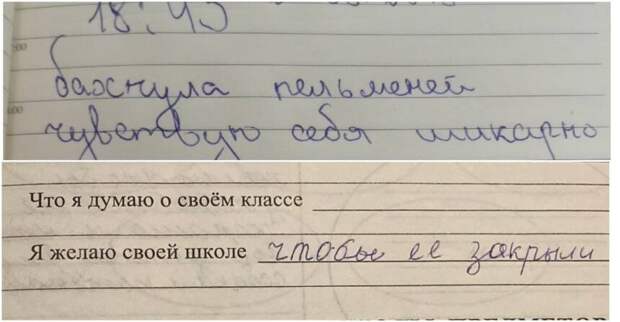 18:45
бахнула пельменей
чувствую себя шикарно
Что я думаю о своём классе
Я желаю своей школе чтобы ее закрыли